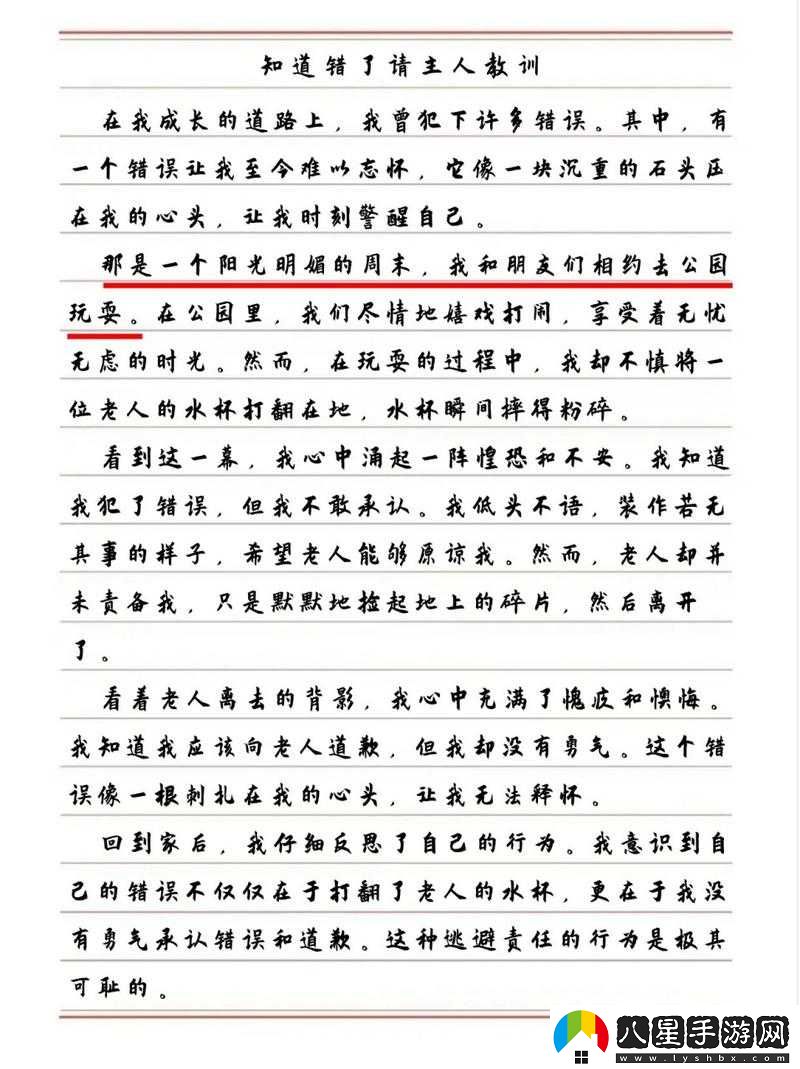 知道错了请主人教训
在我成长的道路上，我曾犯下许多错误。其中，有
一个错误让我至今难以忘怀，它像一块沉重的石头压
在我的心头，让我时刻警醒自己。
那是一个阳光明媚的周末，我和朋友们相约去公园
玩耍。在公园里，我们尽情地嬉戏打闹，享受着无忧
无虑的时光。然而，在玩耍的过程中，我却不慎将一
位老人的水杯打翻在地，水杯瞬间摔得粉碎。
看到这一幕，我心中涌起一阵惶恐和不安。我知道
我犯了错误，但我不敢承认。我低头不语，装作若无
其事的样子，希望老人能够原谅我。然而，老人却并
未责备我，只是默默地捡起地上的碎片，然后离开
了。
看着老人离去的背影，我心中充满了愧疚和懊悔。
我知道我应该向老人道歉，但我却没有勇气。这个错
误像一根刺扎在我的心头，让我无法释怀。
回到家后，我仔细反思了自己的行为。我意识到自
己的错误不仅仅在于打翻了老人的水杯，更在于我没
有勇气承认错误和道歉。这种逃避责任的行为是极其
可耻的。
八星手游网
www.lyshbx.com